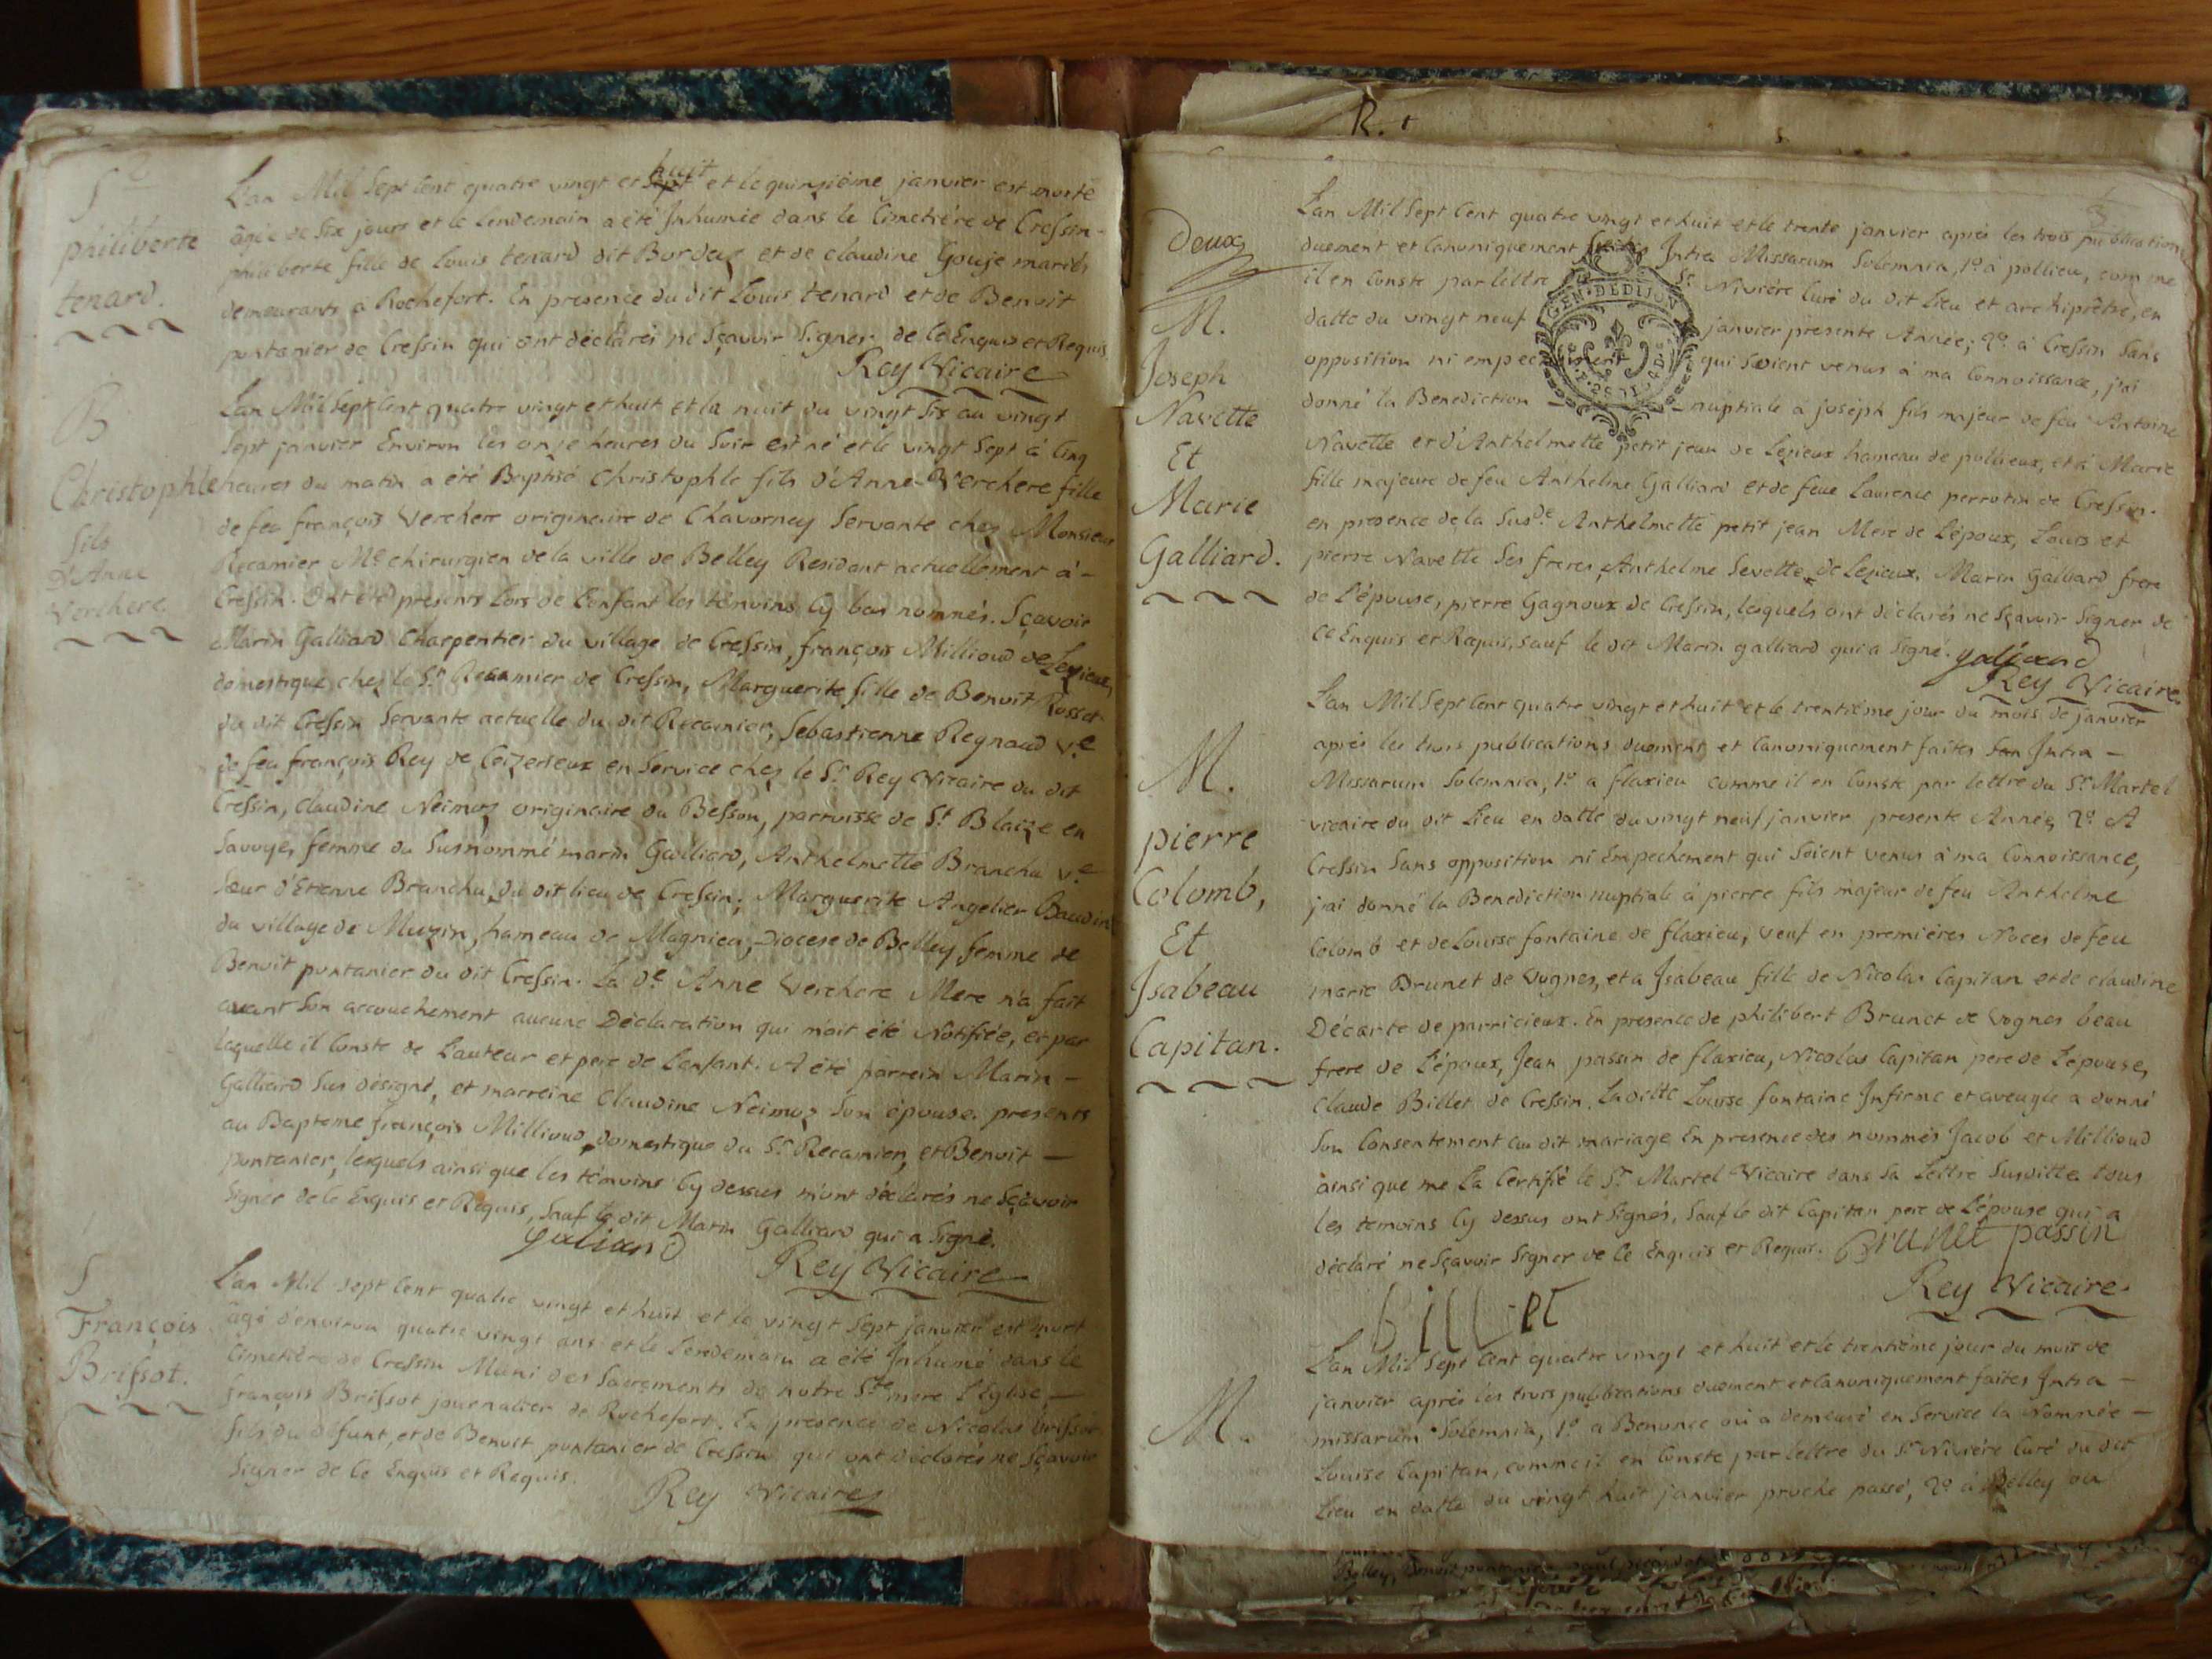 S
philiberte
tenard.
L'an Mil Sept Cent quatre vingt et huit et le quinzième janvier est morte
âgée de Six jours et le Lendemain a été Inhumée dans le Cimetière de Cressin -
philiberte fille de Louis tenard dit Bordeaz et de claudine Gouje mariés
demeurants a Rochefort. En presence du dit Louis tenard et de Benoit
pontanier de Cressin qui ont déclarés ne Sçavoir Signer de ce Enquis et Requis
Rey Vicaire
B
Christophle
fils
d'Anne
Verchere
L'an Mil Sept Cent quatre vingt et huit et la nuit du vingt Six au vingt
Sept janvier Environ les onze heures du Soir est né et le vingt Sept à Cinq
heures du matin a été Baptisé Christophle fils d'Anne Verchere fille
de feu françois Verchere originaire de Chavorney Servante chez Monsieur
Recamier Me chirurgien de la ville de Belley Residant actuellement à -
Cressin. Ont été presents Lors de L'enfant les témoins Cy bas nommés. Sçavoir
Marin Galliard Charpentier du village de Cressin, françois Millioud de Lezieux,
domestique chez le Sr. Recamier de Cressin, Marguerite fille de Benoit Rosset
du dit Cressin Servante actuelle du dit Recamier, Sebastienne Regnaud ve.
de feu françois Rey de Ceizerieux en Service chez le Sr. Rey Vicaire du dit
Cressin, claudine Neimoz originaire du Besson, parroisse de St. Blaize en
Savoye, femme du Susnommé marin Galliard, Anthelmette Branchu ve.
Sœur d'Etienne Branchu, du dit lieu de Cressin; Marguerite Angelier Baudin
du village de Muzin, hameau de Magnieu, Diocese de Belley femme de
Benoit pontanier du dit Cressin. La de. Anne Verchere Mere n'a fait
avant Son accouchement aucune Déclaration qui m'ait été Notifiée, et par
laquelle il Conste de L'auteur et pere de L'enfant. A été parrein Marin -
Galliard Sus désigné, et marreine Claudine Neimoz Son épouse. presents
au Bapteme françois Millioud, domestique du Sr. Recamier, et Benoit -
pontanier, lesquels ainsi que les témoins Cy dessus m'ont déclarés ne Sçavoir
Signer de Ce Enquis et Requis, Sauf le dit Marin Galliard qui a Signé.
galiard
Rey Vicaire
S
François
Brissot.
L'an Mil Sept Cent quatre vingt et huit et le vingt Sept janvier est mort
âgé d'environ quatre vingt ans et le Lendemain a été Inhumé dans le
Cimetière de Cressin Muni des Sacrements de notre Ste mere L'Eglise -
françois Brissot journalier de Rochefort. En présence de Nicolas brissot
fils du défunt, et de Benoit pontanier de Cressin qui ont déclarés ne Sçavoir
Signer de Ce Enquis et Requis.
Rey Vicaire
R.
Deux
M.
Joseph
Navette
Et
Marie
Galliard.
L'an Mil Sept Cent quatre vingt et huit et le trente janvier après les trois publications
duement et Canoniquement Intra Missarum Solemnia, 1º à pollieu, comme
il en Conste par lettre Sr. Nivière Curé du dit Lieu et archiprêtre, en
datte du vingt neuf janvier présente Année; 2º à Cressin Sans
opposition ni empechement qui Soient venus à ma Connoissance, j'ai
donné la Benediction nuptiale à joseph fils majeur de feu Antoine
Navette et d'Anthelmette petit jean de Lezieux hameau de pollieux, et à Marie
fille majeure de feu Anthelme Galliard et de feue Laurence perrotin de Cressin.
en presence de la Susde Anthelmette petit jean Mere de L'époux, Louis et
pierre Navette Ses freres, Anthelme Sevette de Lezieux, Marin Galliard frere
de L'épouse, pierre Gagnoux de Cressin, lesquels ont déclarés ne Sçavoir Signer de
Ce Enquis et Requis, Sauf le dit Marin galliard qui a Signé.
galiard
Rey Vicaire
GEN·DEDIJON
M.
pierre
Colomb,
Et
Isabeau
Capitan.
L'an Mil Sept Cent quatre vingt et huit et le trentième jour du mois de janvier
après les trois publications duement et Canoniquement faites Intra -
Missarum Solemnia, 1º a flaxieu comme il en Conste par lettre du Sr. Martel
vicaire du dit Lieu en datte du vingt neuf janvier presente Année, 2º A
Cressin Sans opposition ni Empechement qui Soient venus à ma Connoissance,
j'ai donné la Benediction nuptiale à pierre fils majeur de feu Anthelme
Colomb et de Louise fontaine de flaxieu, veuf en premières Noces de feu
marie Brunet de Vognes, et a Isabeau fille de Nicolas Capitan et de claudine
Décarte de parricieux. En presence de philibert Brunet de Vognes beau
frere de L'époux, Jean passin de flaxieu, Nicolas Capitan pere de L'épouse,
Claude Billet de Cressin. La ditte Louise fontaine Infirme et aveugle a donné
Son Consentement au dit mariage En presence des nommés Jacob et Millioud
ainsi que me L'a Certifié le Sr Martel Vicaire dans Sa Lettre Susditte tous
les temoins Cy dessus ont Signés, Sauf le dit Capitan pere de L'épouse qui a
déclaré ne Sçavoir Signer de Ce Enquis et Requis. Brunet passin
billet
Rey Vicaire.
M.
L'an Mil Sept Cent quatre vingt et huit et le trentième jour du mois de
janvier après les trois publications duement et Canoniquement faites Intra -
missarum Solemnia, 1º a Benonce où a demeuré en Service la Nommée -
Louise Capitan, comme il en Conste par lettre du Sr Nivière Curé du dit
Lieu en datte du vingt huit janvier proche passé, 2º à Belley ou